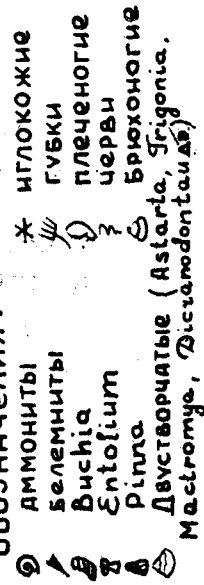 аммониты
белемниты
Buchia
Entolium
Pinna
Двустворчатые (Astarta, Trigonia,
Mactromya, Dicramodonta и др.)
иглокожие
губки
плеченогие
черви
брюхоногие